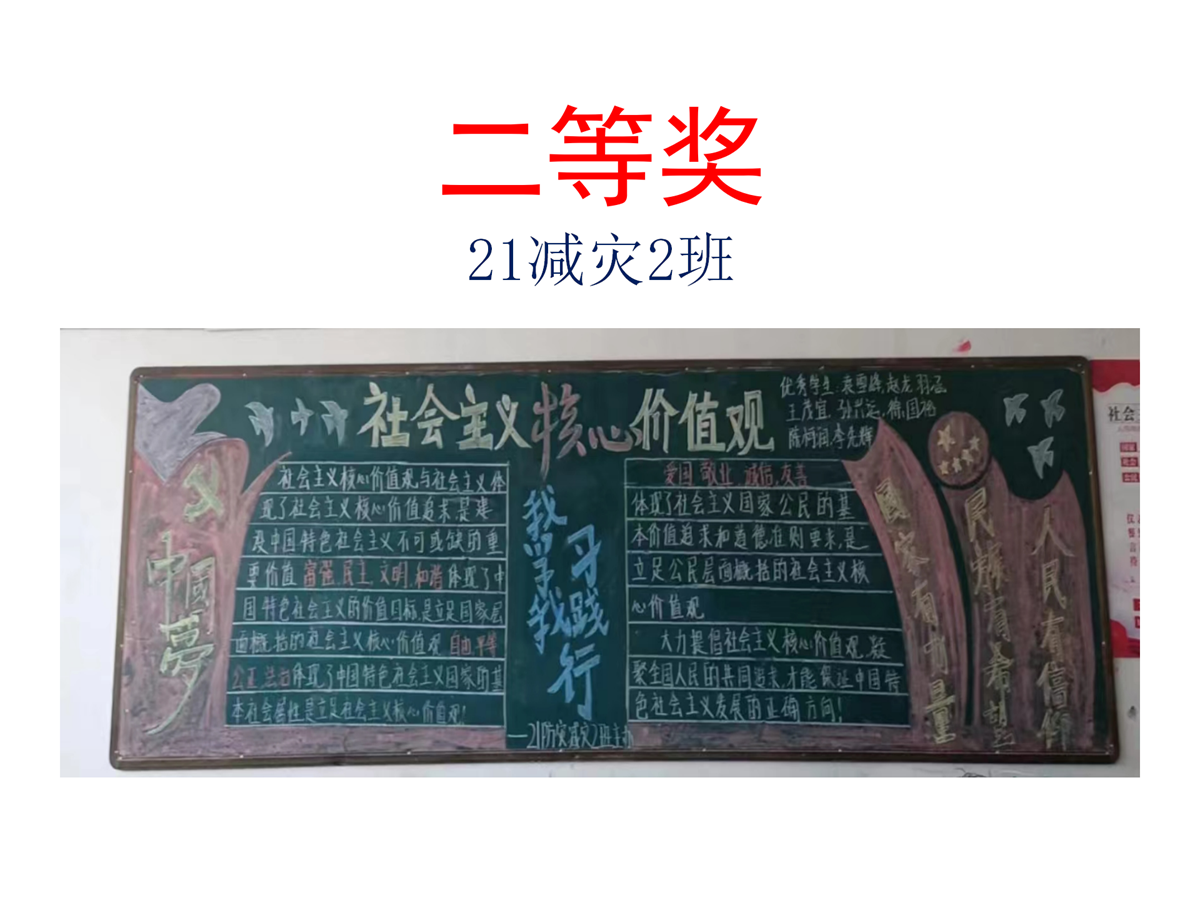 二等奖
21减灾2班
社会主义核心价值观
优秀学生:
中國夢
社会主义核心价值观与社会主义体
现了社会主义核心价值追求,是建
设中国特色社会主义不可或缺的重
要价值 富强 民主 文明 和谐 体现了中
国特色社会主义的价值目标,是立足国家层
面概括的社会主义核心价值观 自由 平等
公正 法治 体现了中国特色社会主义国家的基
本社会属性是立足社会主义核心价值观!
我学习
我践行
—21防灾减灾2班主办
爱国 敬业 诚信 友善
体现了社会主义国家公民的基
本价值追求和道德准则要求,是
立足公民层面概括的社会主义核
心价值观
大力提倡社会主义核心价值观,凝
聚全国人民的共同追求,才能保证中国特
色社会主义发展的正确方向!
國家有力量
民族有希望
人民有信仰
社会